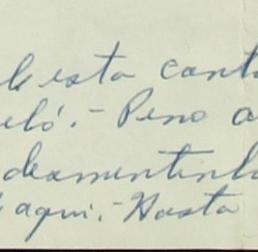 esta cant
eló. - Pero a
desmentirl
aqui. - Hasta